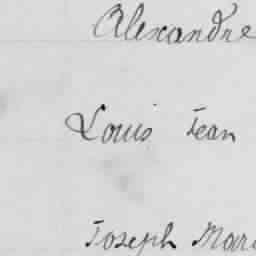 Alexandre
Louis Jean
Joseph Mari